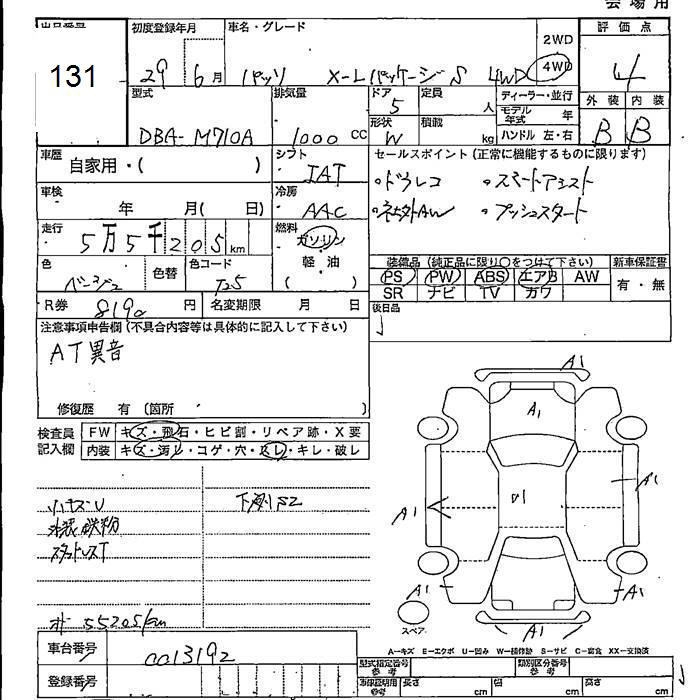 会場用
131
初度登録年月 車名・グレード 評価点
29 6月 パッソ X-Lパッケージ S 4WD 2WD 4WD 4
型式 排気量 ドア 定員 ディーラー・並行 外装 内装
DBA-M710A 1000 CC 5 人 モデル年式 年 B B
形状 W 積載 kg ハンドル 左・右
車歴 自家用・( ) シフト IAT セールスポイント (正常に機能するものに限ります)
・ドラレコ ・スマートアシスト
車検 年 月( 日) 冷房 AAC
・社外AW ・プッシュスタート
走行 5万5千205km 燃料 ガソリン
軽・油
( )
色 ベージュ 色替 色コード T25
装備品 (純正品に限り○をつけて下さい) 新車保証書
PS PW ABS エアB AW 有・無
SR ナビ TV カワ
R券 8190円 名変期限 月 日 後日品
注意事項申告欄 (不具合内容等は具体的に記入して下さい)
AT異音
修復歴 有 (箇所 )
検査員 記入欄 FW キズ・飛石・ヒビ割・リペア跡・X要
内装 キズ・汚レ・コゲ・穴・スレ・キレ・破レ
小キズ・U 下廻りS2
塗装鉄粉
スタッドレスT
オドー 55205km
A1
A1
A1
A1
A1
A1
A1
A1
スペア
A―キズ E―エクボ U―凹み W―補修跡 S―サビ C―腐食 XX―交換済
車台番号 0013192
型式指定番号 参考 類別区分番号 参考
登録番号
車庫証明用 参考 長さ cm 幅 cm 高さ cm